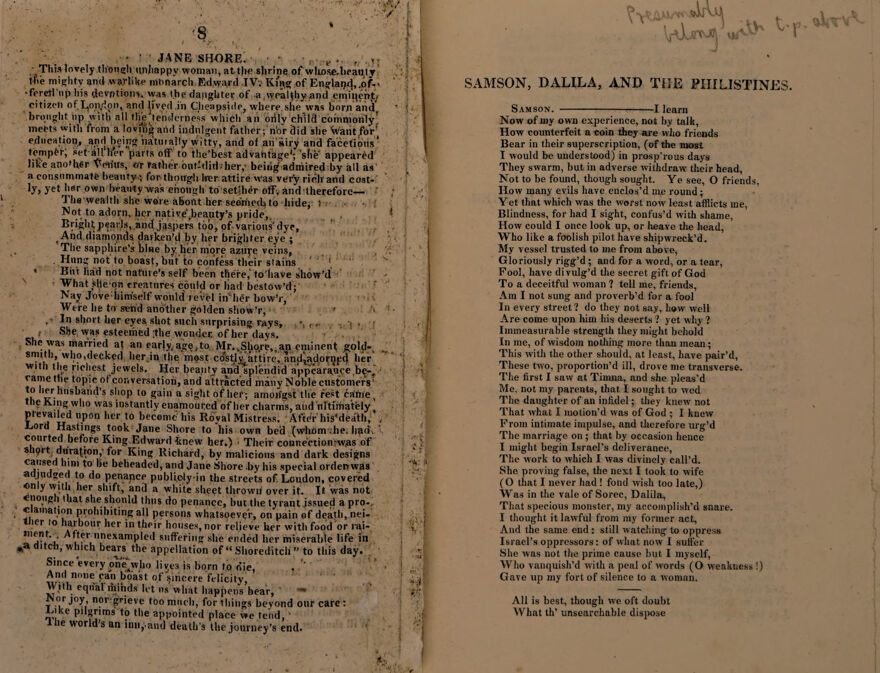 8
JANE SHORE.
This lovely though unhappy woman, at the shrine of whose beauty
the mighty and warlike monarch Edward IV. King of England, of-
fered up his devotions, was the daughter of a wealthy and eminent
citizen of London, and lived in Cheapside, where she was born and
brought up with all the tenderness which an only child commonly
meets with from a loving and indulgent father; nor did she want for
education, and being naturally witty, and of an airy and facetious
temper, set all her parts off to the best advantage; she appeared
like another Venus, or rather outdid her, being admired by all as
a consummate beauty; for though her attire was very rich and cost-
ly, yet her own beauty was enough to set her off, and therefore—
The wealth she wore about her seemed to hide,
Not to adorn, her native beauty's pride,
Bright pearls, and jaspers too, of various dye,
And diamonds darken'd by her brighter eye;
The sapphire's blue by her more azure veins,
Hung not to boast, but to confess their stains
But had not nature's self been there, to have show'd
What she on creatures could or had bestow'd;
Nay Jove himself would revel in her bow'r,
Were he to send another golden show'r,
In short her eyes shot such surprising rays,
She was esteemed the wonder of her days.
She was married at an early age, to Mr. Shore, an eminent gold-
smith, who decked her in the most costly attire, and adorned her
with the richest jewels. Her beauty and splendid appearance be-
came the topic of conversation, and attracted many Noble customers
to her husband's shop to gain a sight of her; amongst the rest came
the King who was instantly enamoured of her charms, and ultimately
prevailed upon her to become his Royal Mistress. After his death,
Lord Hastings took Jane Shore to his own bed (whom he had
courted before King Edward knew her.) Their connection was of
short duration, for King Richard, by malicious and dark designs
caused him to be beheaded, and Jane Shore by his special order was
adjudged to do penance publicly in the streets of London, covered
only with her shift, and a white sheet thrown over it. It was not
enough that she should thus do penance, but the tyrant issued a pro-
clamation prohibiting all persons whatsoever, on pain of death, nei-
ther to harbour her in their houses, nor relieve her with food or rai-
ment. After unexampled suffering she ended her miserable life in
a ditch, which bears the appellation of "Shoreditch" to this day.
Since every one who lives is born to die,
And none can boast of sincere felicity,
With equal minds let us what happens bear,
Nor joy, nor grieve too much, for things beyond our care:
Like pilgrims to the appointed place we tend,
The world's an inn, and death's the journey's end.
Presumably
belong with t.p. above
SAMSON, DALILA, AND THE PHILISTINES.
SAMSON. ————————I learn
Now of my own experience, not by talk,
How counterfeit a coin they are who friends
Bear in their superscription, (of the most
I would be understood) in prosp'rous days
They swarm, but in adverse withdraw their head,
Not to be found, though sought. Ye see, O friends,
How many evils have enclos'd me round;
Yet that which was the worst now least afflicts me,
Blindness, for had I sight, confus'd with shame,
How could I once look up, or heave the head,
Who like a foolish pilot have shipwreck'd.
My vessel trusted to me from above,
Gloriously rigg'd; and for a word, or a tear,
Fool, have divulg'd the secret gift of God
To a deceitful woman? tell me, friends,
Am I not sung and proverb'd for a fool
In every street? do they not say, how well
Are come upon him his deserts? yet why?
Immeasurable strength they might behold
In me, of wisdom nothing more than mean;
This with the other should, at least, have pair'd,
These two, proportion'd ill, drove me transverse.
The first I saw at Timna, and she pleas'd
Me, not my parents, that I sought to wed
The daughter of an infidel; they knew not
That what I motion'd was of God; I knew
From intimate impulse, and therefore urg'd
The marriage on; that by occasion hence
I might begin Israel's deliverance,
The work to which I was divinely call'd.
She proving false, the next I took to wife
(O that I never had! fond wish too late,)
Was in the vale of Sorec, Dalila,
That specious monster, my accomplish'd snare.
I thought it lawful from my former act,
And the same end; still watching to oppress
Israel's oppressors: of what now I suffer
She was not the prime cause but I myself,
Who vanquish'd with a peal of words (O weakness!)
Gave up my fort of silence to a woman.
All is best, though we oft doubt
What th' unsearchable dispose